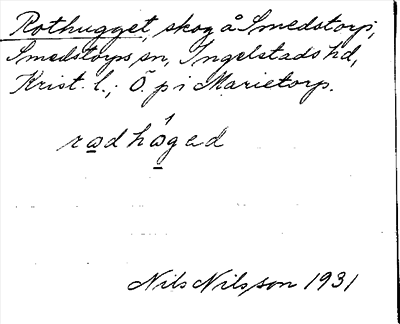 Rothugget, skog å Smedstorp;
Smedstorps sn, Ingelstads hd,
Krist. l.; Ö. p i Marietorp.
radhåged
Nils Nilsson 1931